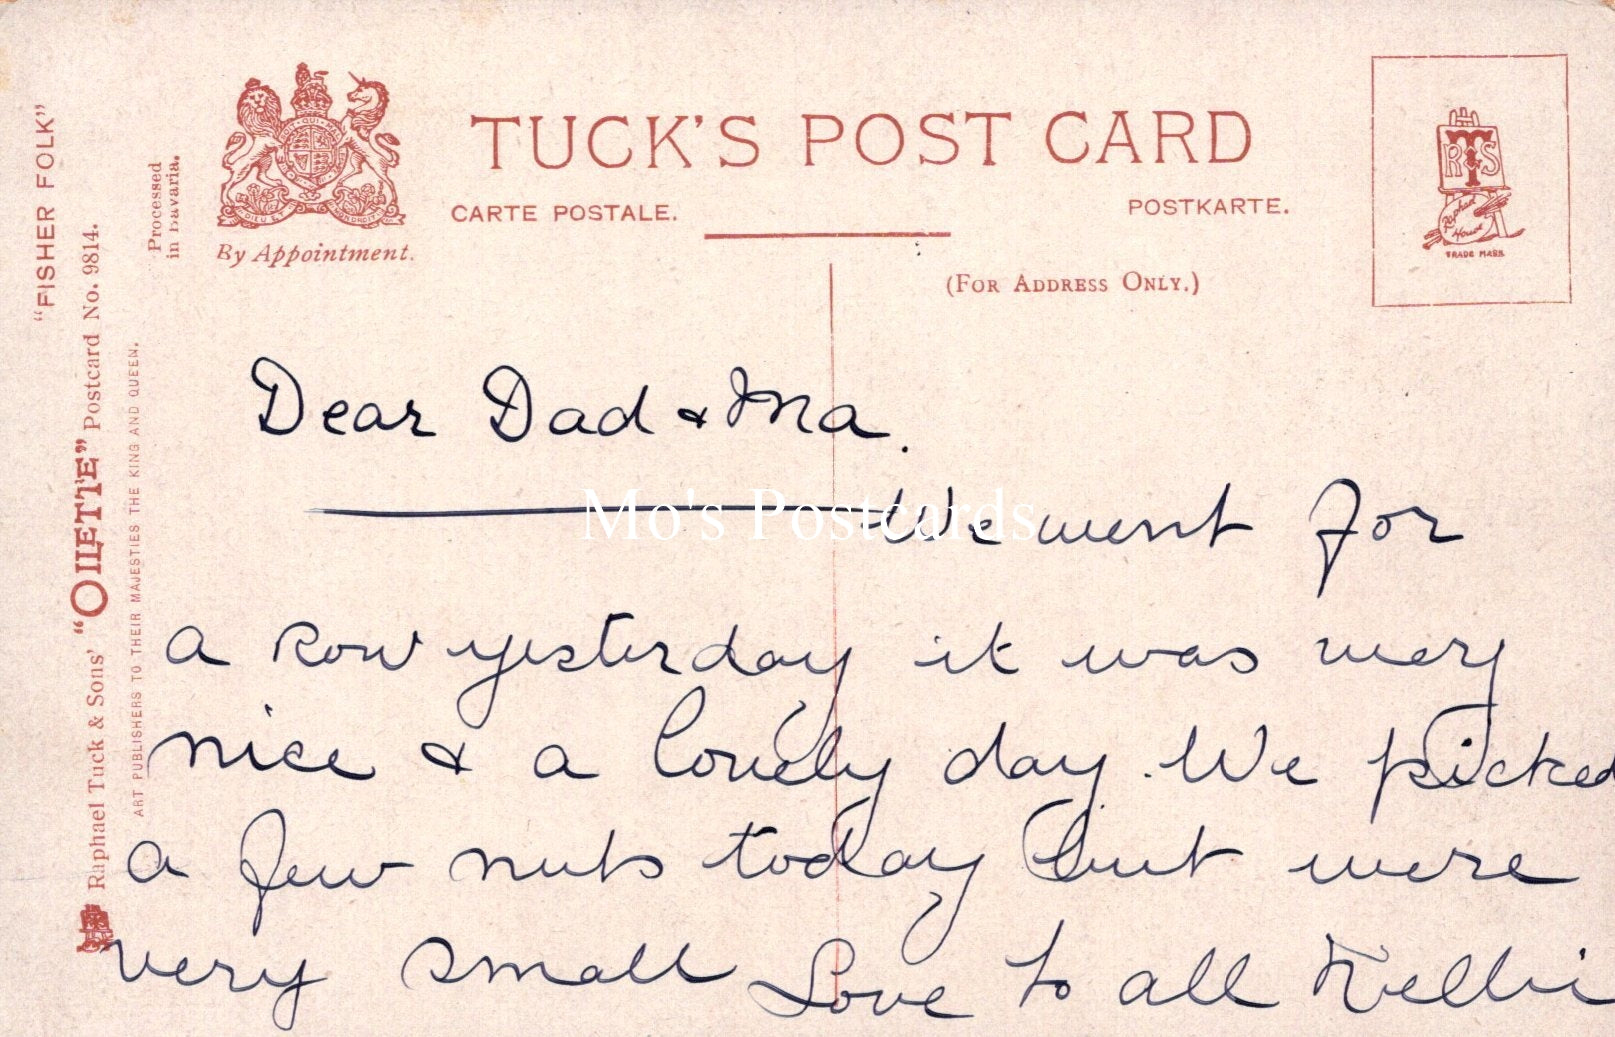 "FISHER FOLK"
Raphael Tuck & Sons' "OILETTE" Postcard No. 9814.
ART PUBLISHERS TO THEIR MAJESTIES THE KING AND QUEEN.
Processed
in Bavaria.
By Appointment.
TUCK'S POST CARD
CARTE POSTALE.
POSTKARTE.
(FOR ADDRESS ONLY.)
RTS
Raphael
House
TRADE MARK
Dear Dad & Ma.
We went for
a row yesterday it was very
nice & a lovely day. We picked
a few nuts today but were
very small Love to all Nellie
Mo's Postcards